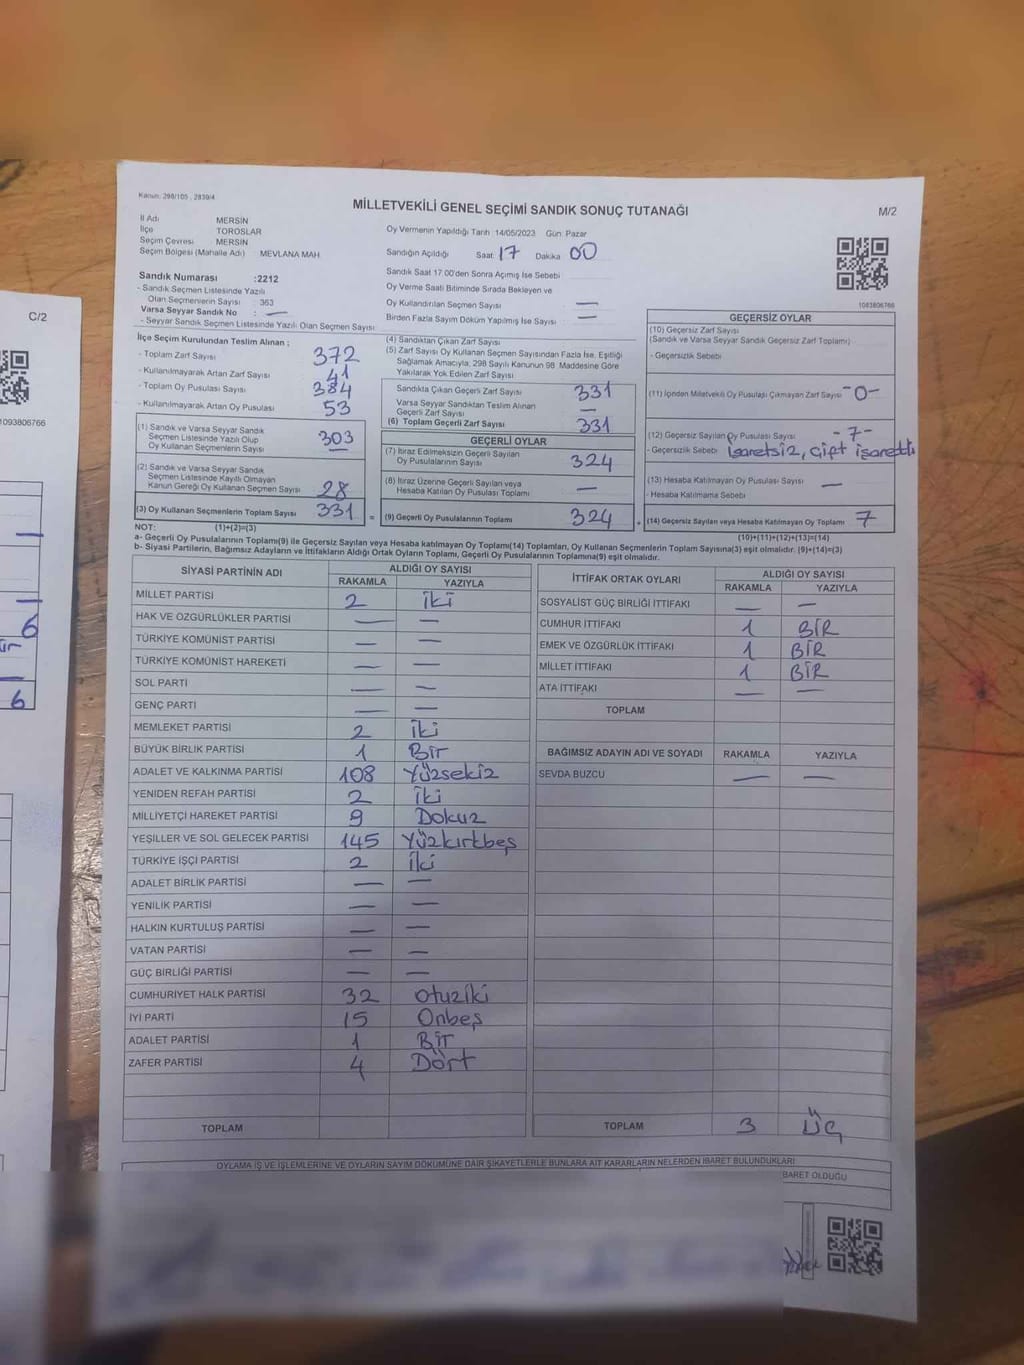 C/2
1093806766
6
6
Kanun: 298/105 , 2839/4
MİLLETVEKİLİ GENEL SEÇİMİ SANDIK SONUÇ TUTANAĞI
M/2
İl Adı MERSİN
İlçe TOROSLAR
Seçim Çevresi MERSİN
Seçim Bölgesi (Mahalle Adı) MEVLANA MAH.
Oy Vermenin Yapıldığı Tarih 14/05/2023 Gün: Pazar
Sandığın Açıldığı Saat 17 Dakika 00
Sandık Saat 17:00'den Sonra Açımış İse Sebebi
Oy Verme Saati Bitiminde Sırada Bekleyen ve
Oy Kullandırılan Seçmen Sayısı —
Birden Fazla Sayım Döküm Yapılmış İse Sayısı —
1093806766
Sandık Numarası :2212
- Sandık Seçmen Listesinde Yazılı
Olan Seçmenlerin Sayısı : 363
Varsa Seyyar Sandık No : —
- Seyyar Sandık Seçmen Listesinde Yazılı Olan Seçmen Sayısı:
İlçe Seçim Kurulundan Teslim Alınan ;
- Toplam Zarf Sayısı 372
- Kullanılmayarak Artan Zarf Sayısı 41
- Toplam Oy Pusulası Sayısı 384
- Kullanılmayarak Artan Oy Pusulası 53
(1) Sandık ve Varsa Seyyar Sandık
Seçmen Listesinde Yazılı Olup
Oy Kullanan Seçmenlerin Sayısı 303
(2) Sandık ve Varsa Seyyar Sandık
Seçmen Listesinde Kayıtlı Olmayan
Kanun Gereği Oy Kullanan Seçmen Sayısı 28
(3) Oy Kullanan Seçmenlerin Toplam Sayısı 331 =
(4) Sandıktan Çıkan Zarf Sayısı
(5) Zarf Sayısı Oy Kullanan Seçmen Sayısından Fazla İse, Eşitliği
Sağlamak Amacıyla, 298 Sayılı Kanunun 98. Maddesine Göre
Yakılarak Yok Edilen Zarf Sayısı
Sandıkta Çıkan Geçerli Zarf Sayısı 331
Varsa Seyyar Sandıktan Teslim Alınan
Geçerli Zarf Sayısı —
(6) Toplam Geçerli Zarf Sayısı 331
GEÇERLİ OYLAR
(7) İtiraz Edilmeksizin Geçerli Sayılan
Oy Pusulalarının Sayısı 324
(8) İtiraz Üzerine Geçerli Sayılan veya
Hesaba Katılan Oy Pusulası Toplamı —
(9) Geçerli Oy Pusulalarının Toplamı 324 +
GEÇERSİZ OYLAR
(10) Geçersiz Zarf Sayısı
(Sandık ve Varsa Seyyar Sandık Geçersiz Zarf Toplamı)
- Geçersizlik Sebebi
(11) İçinden Milletvekili Oy Pusulası Çıkmayan Zarf Sayısı -0-
(12) Geçersiz Sayılan Oy Pusulası Sayısı -7-
- Geçersizlik Sebebi İşaretsiz, çift işaretli
(13) Hesaba Katılmayan Oy Pusulası Sayısı —
- Hesaba Katılmama Sebebi
(14) Geçersiz Sayılan veya Hesaba Katılmayan Oy Toplamı 7
NOT: (1)+(2)=(3) (10)+(11)+(12)+(13)=(14)
a- Geçerli Oy Pusulalarının Toplamı(9) ile Geçersiz Sayılan veya Hesaba katılmayan Oy Toplamı(14) Toplamları, Oy Kullanan Seçmenlerin Toplam Sayısına(3) eşit olmalıdır. (9)+(14)=(3)
b- Siyasi Partilerin, Bağımsız Adayların ve İttifakların Aldığı Ortak Oyların Toplamı, Geçerli Oy Pusulalarının Toplamına(9) eşit olmalıdır.
SİYASİ PARTİNİN ADI ALDIĞI OY SAYISI
RAKAMLA YAZIYLA
MİLLET PARTİSİ 2 İki
HAK VE ÖZGÜRLÜKLER PARTİSİ — —
TÜRKİYE KOMÜNİST PARTİSİ — —
TÜRKİYE KOMÜNİST HAREKETİ — —
SOL PARTİ — —
GENÇ PARTİ — —
MEMLEKET PARTİSİ 2 İki
BÜYÜK BİRLİK PARTİSİ 1 Bir
ADALET VE KALKINMA PARTİSİ 108 Yüzsekiz
YENİDEN REFAH PARTİSİ 2 İki
MİLLİYETÇİ HAREKET PARTİSİ 9 Dokuz
YEŞİLLER VE SOL GELECEK PARTİSİ 145 Yüzkırkbeş
TÜRKİYE İŞÇİ PARTİSİ 2 İki
ADALET BİRLİK PARTİSİ — —
YENİLİK PARTİSİ — —
HALKIN KURTULUŞ PARTİSİ — —
VATAN PARTİSİ — —
GÜÇ BİRLİĞİ PARTİSİ — —
CUMHURİYET HALK PARTİSİ 32 Otuziki
İYİ PARTİ 15 Onbeş
ADALET PARTİSİ 1 Bir
ZAFER PARTİSİ 4 Dört
TOPLAM
İTTİFAK ORTAK OYLARI ALDIĞI OY SAYISI
RAKAMLA YAZIYLA
SOSYALİST GÜÇ BİRLİĞİ İTTİFAKI — —
CUMHUR İTTİFAKI 1 BİR
EMEK VE ÖZGÜRLÜK İTTİFAKI 1 BİR
MİLLET İTTİFAKI 1 BİR
ATA İTTİFAKI — —
TOPLAM
BAĞIMSIZ ADAYIN ADI VE SOYADI RAKAMLA YAZIYLA
SEVDA BUZCU — —
TOPLAM 3 ÜÇ
OYLAMA İŞ VE İŞLEMLERİNE VE OYLARIN SAYIM DÖKÜMÜNE DAİR ŞİKAYETLERLE BUNLARA AİT KARARLARIN NELERDEN İBARET BULUNDUKLARI
BARET OLDUĞU